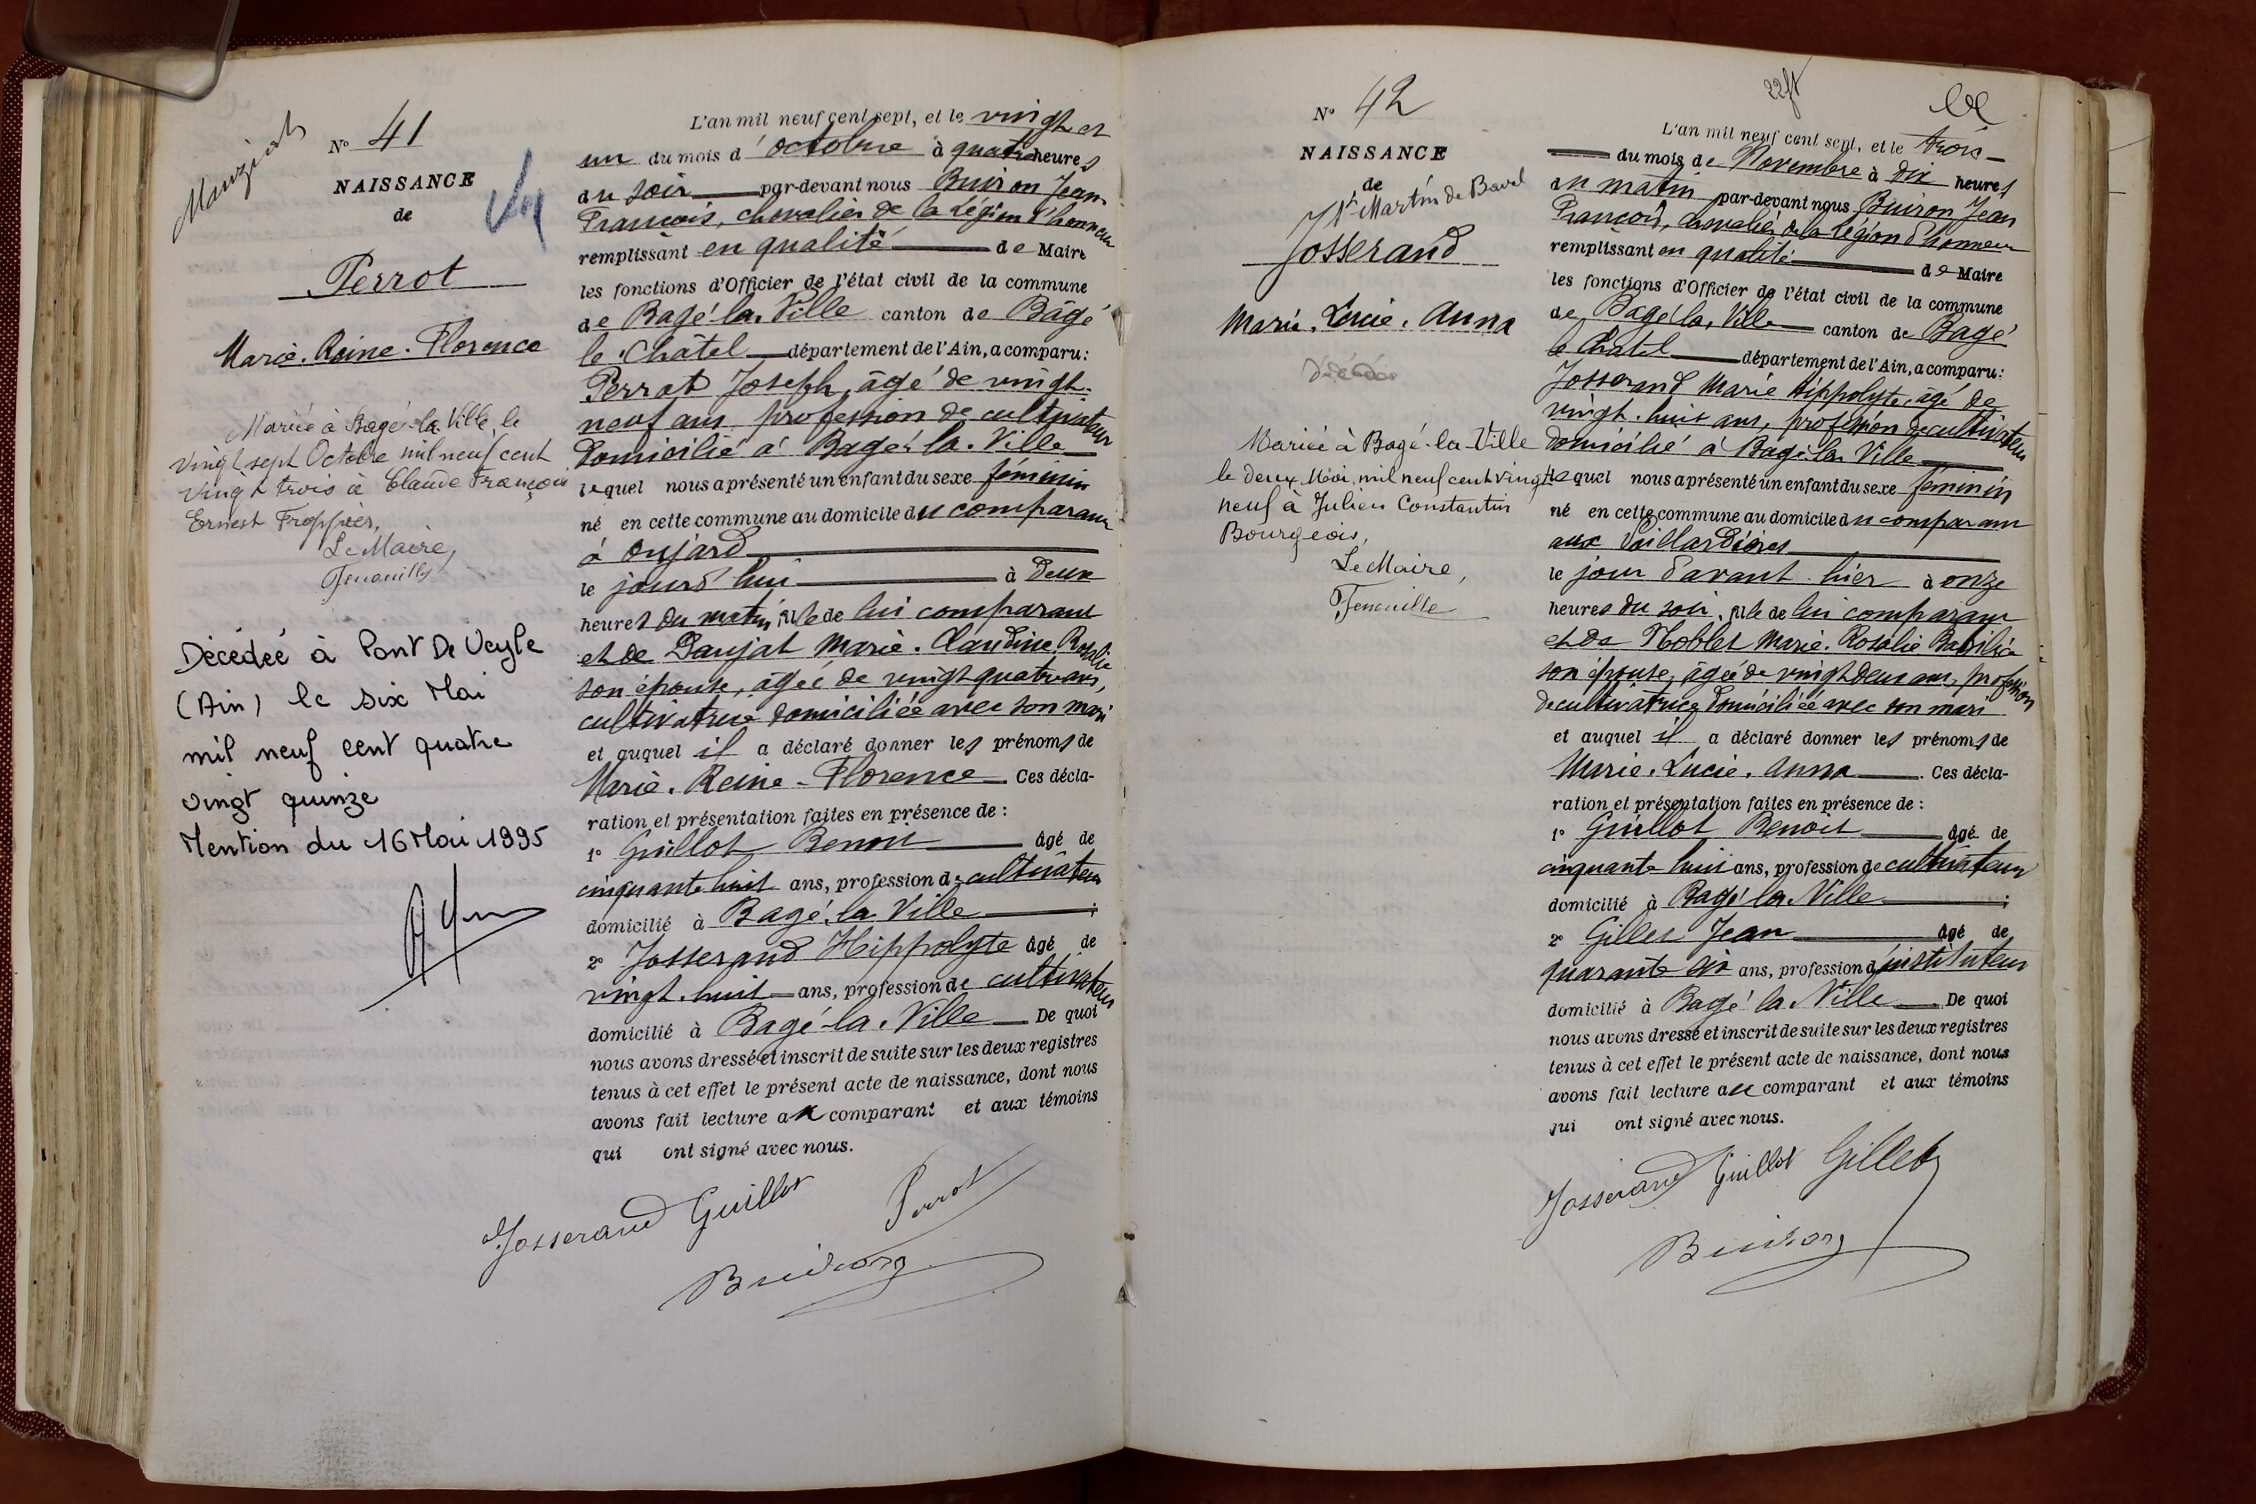 Manziat
N° 41
NAISSANCE
de
Perrot
Marie. Reine. Florence
Mariée à Bagé-la-Ville, le
vingt sept Octobre mil neuf cent
vingt trois à Claude François
Ernest Froppier,
Le Maire,
Fenouillet
Décédée à Pont De Veyle
(Ain) le six Mai
mil neuf cent quatre
vingt quinze
Mention du 16 Mai 1995
L'an mil neuf cent sept, et le vingt et
un du mois d'octobre à quatre heures
du soir par-devant nous Buiron Jean
François, chevalier de la Légion d'honneur
remplissant en qualité de Maire
les fonctions d'Officier de l'état civil de la commune
de Bagé la Ville canton de Bâgé
le Châtel département de l'Ain, a comparu :
Perrot Joseph, âgé de vingt
neuf ans profession de cultivateur
domicilié à Bagé-la-Ville
lequel nous a présenté un enfant du sexe féminin
né en cette commune au domicile du comparant
à Oujard
le jourd'hui à deux
heures du matin, fille de lui comparant
et de Daujat Marie. Claudine Rosalie
son épouse, âgée de vingt quatre ans,
cultivatrice domiciliée avec son mari
et auquel il a déclaré donner les prénoms de
Marie. Reine - Florence Ces décla-
ration et présentation faites en présence de :
1° Guillot Benoit âgé de
cinquante huit ans, profession de cultivateur
domicilié à Bagé-la Ville ;
2° Josserand Hippolyte âgé de
vingt-huit ans, profession de cultivateur
domicilié à Bagé-la-Ville De quoi
nous avons dressé et inscrit de suite sur les deux registres
tenus à cet effet le présent acte de naissance, dont nous
avons fait lecture au comparant et aux témoins
qui ont signé avec nous.
Josserand Guillot Perrot
Buiron
22ft
N° 42
NAISSANCE
de
St Martin de Bavel
Josserand
Marie. Lucie. Anna
Décédée
Mariée à Bagé-la-Ville
le deux Mai mil neuf cent vingt
neuf à Julien Constantin
Bourgeois,
Le Maire,
L'an mil neuf cent sept, et le trois
du mois de Novembre à dix heures
du matin par-devant nous Buiron Jean
François, chevalier de la Légion d'honneur
remplissant en qualité de Maire
les fonctions d'Officier de l'état civil de la commune
de Bagé la Ville canton de Bagé
le Chatel département de l'Ain, a comparu :
Josserand Marie Hippolyte, âgé de
vingt-huit ans, profession de cultivateur
domicilié à Bagé-la-Ville
lequel nous a présenté un enfant du sexe féminin
né en cette commune au domicile du comparant
aux Vaillardières
le jour d'avant-hier à onze
heures du soir, fille de lui comparant
et de Noblet Marie. Rosalie Basilice
son épouse, âgée de vingt deux ans, profession
de cultivatrice domiciliée avec son mari
et auquel il a déclaré donner les prénoms de
Marie. Lucie. Anna Ces décla-
ration et présentation faites en présence de :
1° Guillot Benoit âgé de
cinquante huit ans, profession de cultivateur
domicilié à Bagé la Ville ;
2° Gilles Jean âgé de
quarante six ans, profession d'instituteur
domicilié à Bagé la Ville De quoi
nous avons dressé et inscrit de suite sur les deux registres
tenus à cet effet le présent acte de naissance, dont nous
avons fait lecture au comparant et aux témoins
qui ont signé avec nous.
Josserand Guillot Gilles
Buiron